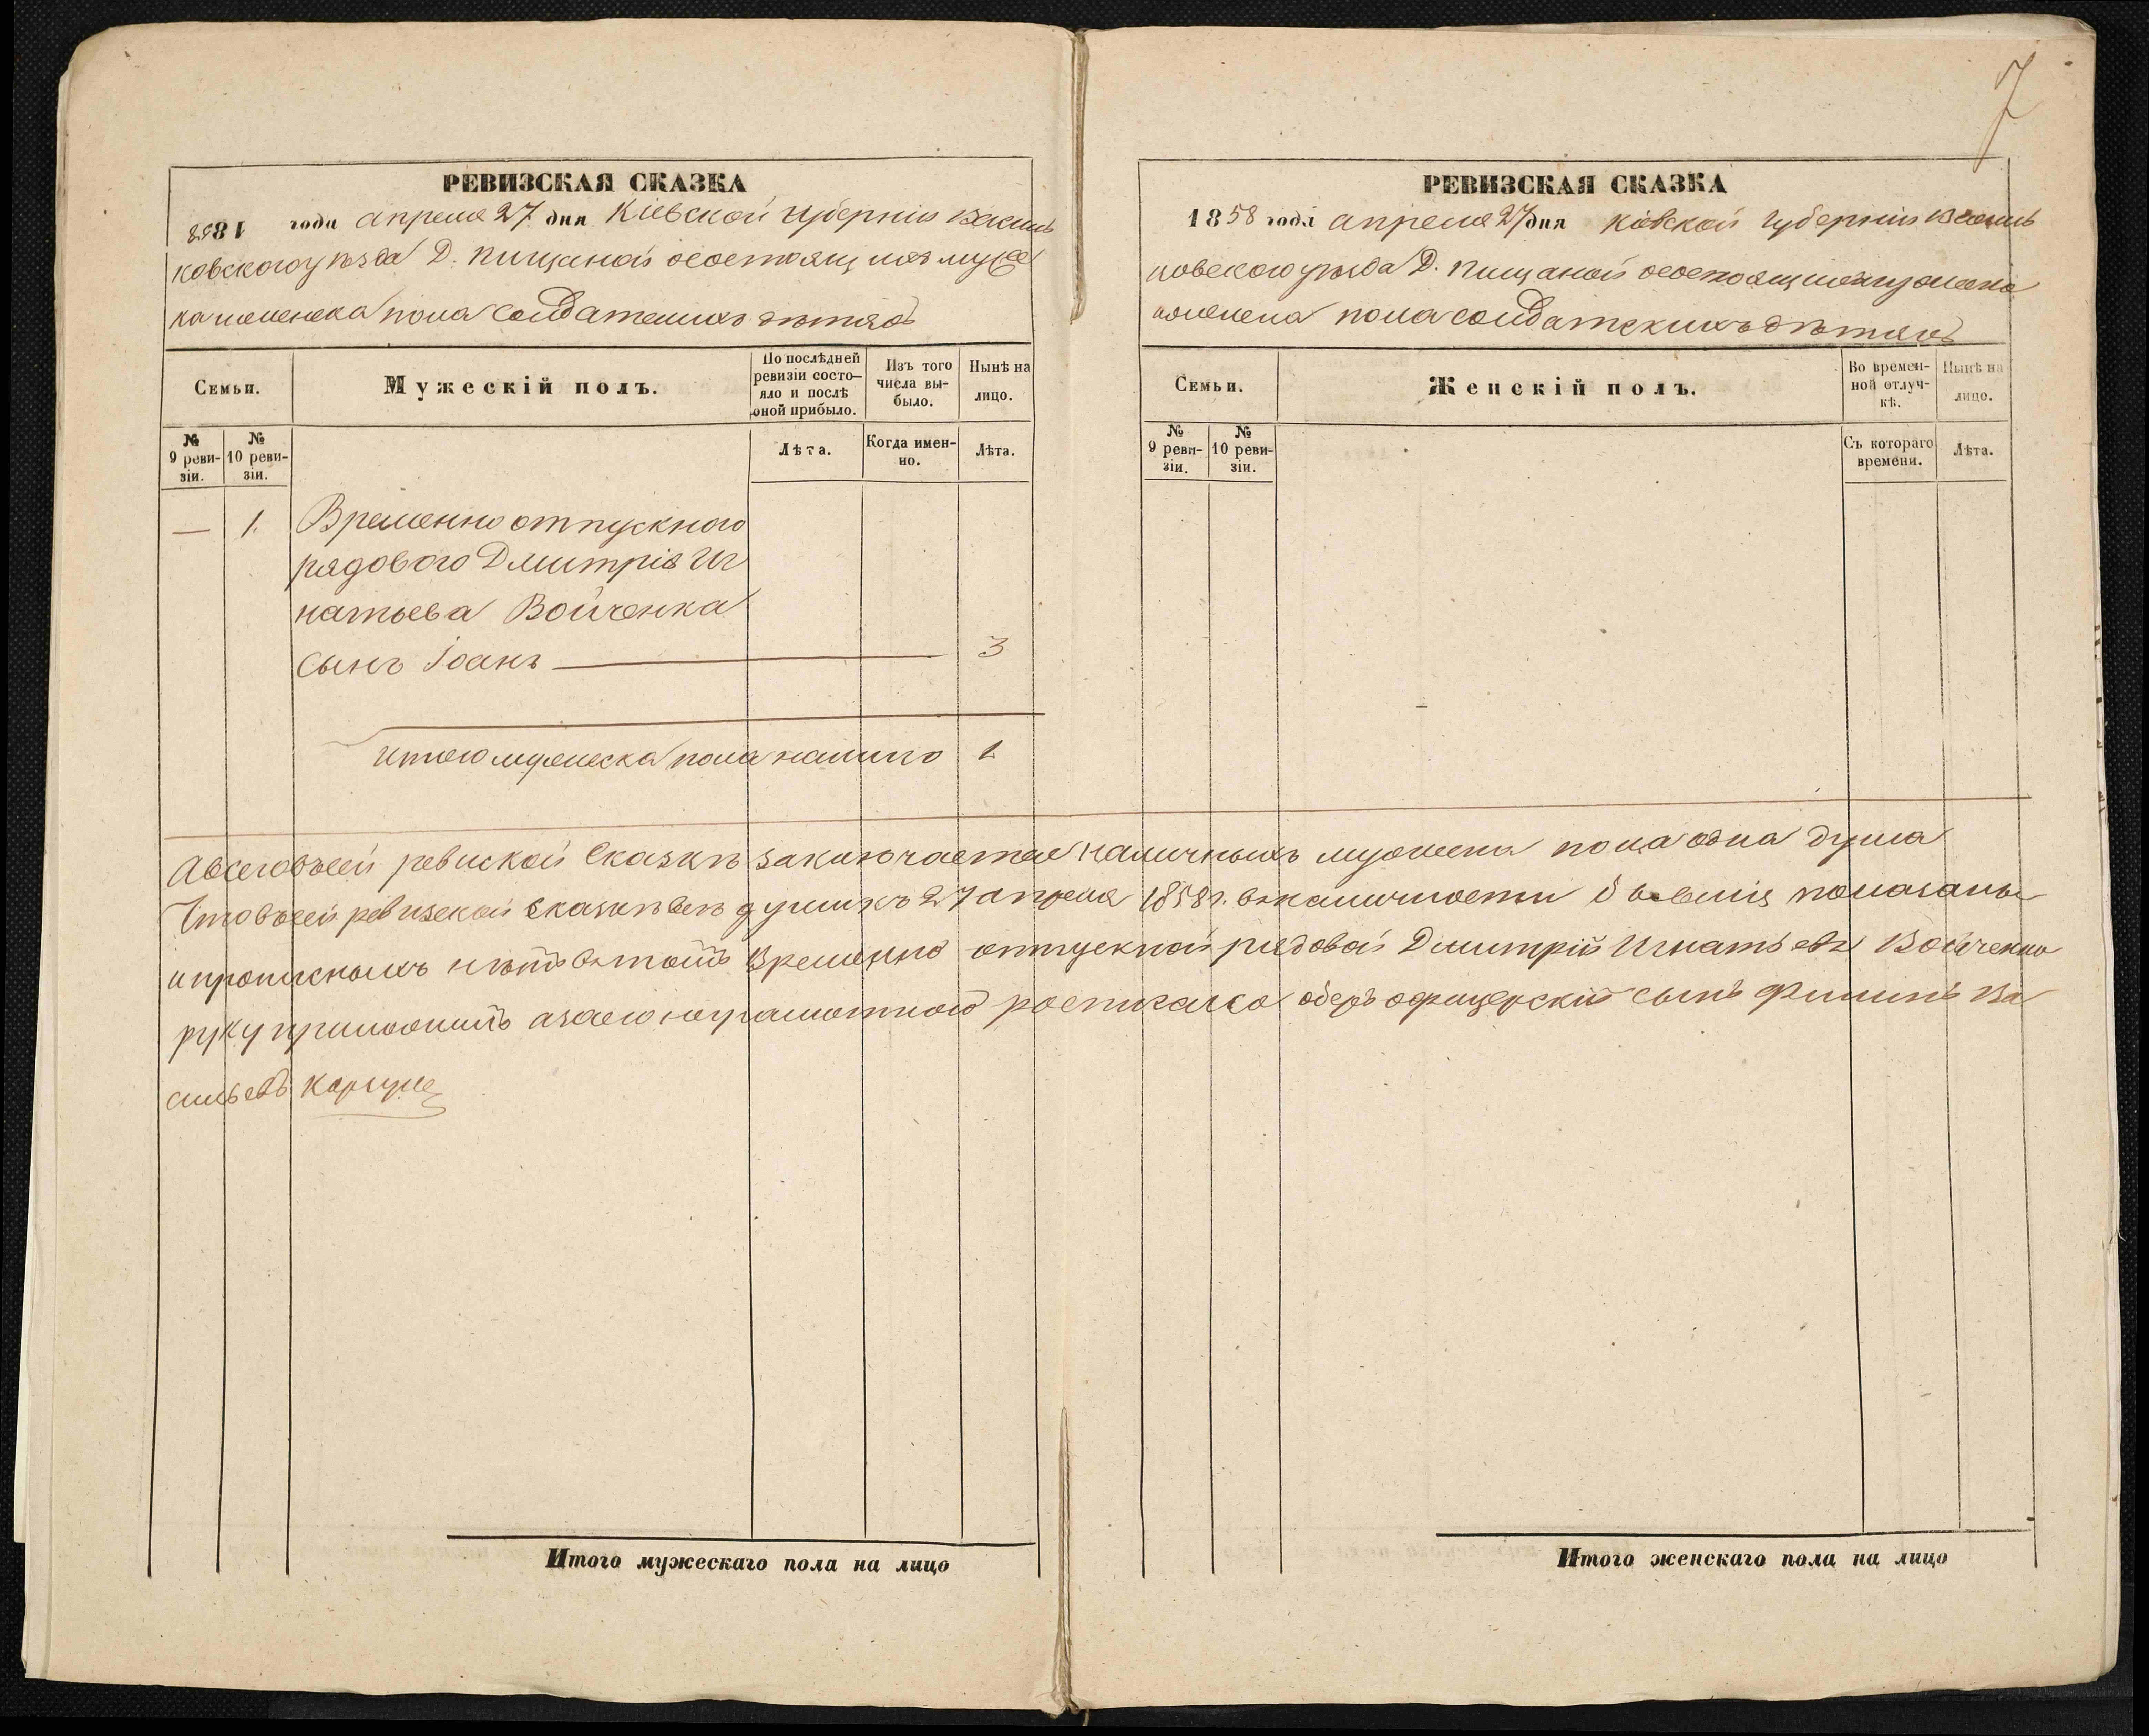 7
РЕВИЗСКАЯ СКАЗКА
1858 года апреля 27 дня Кіевской губерніи Василь
ковского уѣзда Д. Пищаной осостоящихъ мужес
ка женска пола солдатскихъ дѣтяхъ
Семьи.
Мужескій полъ.
По послѣдней ревизіи состояло и послѣ оной прибыло.
Изъ того числа выбыло.
Нынѣ на лицо.
№ 9 ревизіи.
№ 10 ревизіи.
Лѣта.
Когда именно.
Лѣта.
— 1. Временно отпускного
рядового Дмитрія Иг
натьева Войченка
сынъ Іоанъ — 3
Итого мужеска пола налицо 1
РЕВИЗСКАЯ СКАЗКА
1858 года апреля 27 дня Кіевской губерніи Василь
ковского уѣзда Д. Пищаной осостоящихъ мужеска
женска пола солдатскихъ дѣтяхъ
Семьи.
Женскій полъ.
Во временной отлучкѣ.
Нынѣ на лицо.
№ 9 ревизіи.
№ 10 ревизіи.
Съ котораго времени.
Лѣта.
А всего въ сей ревиской Сказкѣ заключается наличныхъ мужеска пола одна душа
Что в сей ревизской Сказкѣ всѣ души къ 27 апреля 1858 г. в наличности бывшія показаны
и прописныхъ нѣтъ в томъ Временно отпускной рядовой Дмитрій Игнатьевъ Войченко
руку приложилъ а за его неграмотного росписался оберъ офицерскій сынъ Филипъ Ва
сильевъ
Итого мужескаго пола на лицо
Итого женскаго пола на лицо